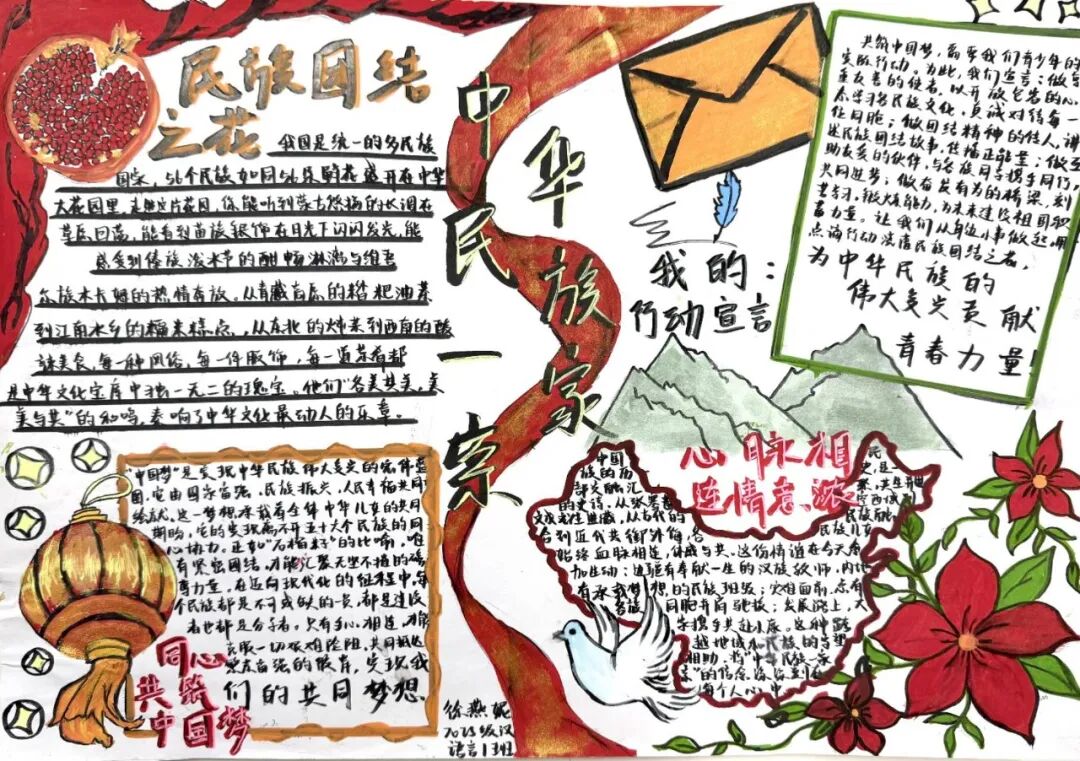 民族团结
之花
我国是统一的多民族
国家，56个民族如同56朵鲜花盛开在中华
大花园里。走进这片花园，你能听到蒙古悠扬的长调在
草原回荡，能看到苗族银饰在日光下闪闪发光，能
感受到傣族泼水节的酣畅淋漓与维吾
尔族木卡姆的热情奔放。从青藏高原的糌粑油茶
到江南水乡的糯米糕点，从东北的炖菜到西南的酸
辣美食，每一种风俗，每一件服饰，每一道菜肴都
是中华文化宝库中独一无二的瑰宝。他们“各美其美，美
美与共”的和鸣，奏响了中华文化最动人的乐章。
中华民族一家
中民一家
华族家
“中国梦”是实现中华民族伟大复兴的宏伟蓝
图，它由国家富强、民族振兴、人民幸福共同
绘就。这一梦想承载着全体中华儿女的共同
期盼，它的实现离不开五十六个民族的同
心协力。正如“石榴籽”的比喻，唯
有紧密团结，才能汇聚无坚不摧的磅
礴力量。在迈向现代化的征程中，每
个民族都是不可或缺的一员，都是建设
者也都是分子者。只有手心相连，才能
克服一切艰难险阻，共同抵达
繁荣富强的彼岸，实现我
们的共同梦想
同心
共筑
中国梦
徐燕妮
2023级汉
语言1班
我的：
行动宣言
共筑中国梦，需要我们青少年的
实际行动。为此，我们宣言：做尊
重友善的使者，以开放包容的心
态学习各民族文化，真诚对待每一
位同胞；做团结精神的传人，讲
述民族团结故事，传播正能量；做互
助友爱的伙伴，与各族同学携手同行，
共同进步；做奋发有为的桥梁，刻
苦学习，锻炼能力，为未来建设祖国积
蓄力量。让我们从身边小事做起，用
点滴行动浇灌民族团结之花，
为中华民族的
伟大复兴贡献
青春力量！
心脉相
连情意浓
中国
族的历
部交融汇
的史诗，从张骞
文成公主进藏，从古代的
合到近代共御外侮，各
始终血脉相连，休戚与共。这份情谊在今天
加生动：边疆有奉献一生的汉族教师，内地
有承载梦想的民族班级；灾难面前，总有
各族同胞并肩驰援；发展路上，大
家携手共赴小康。这种跨
越地域和民族的守望
相助，将“中华民族一家
亲”的信念
每个人心中